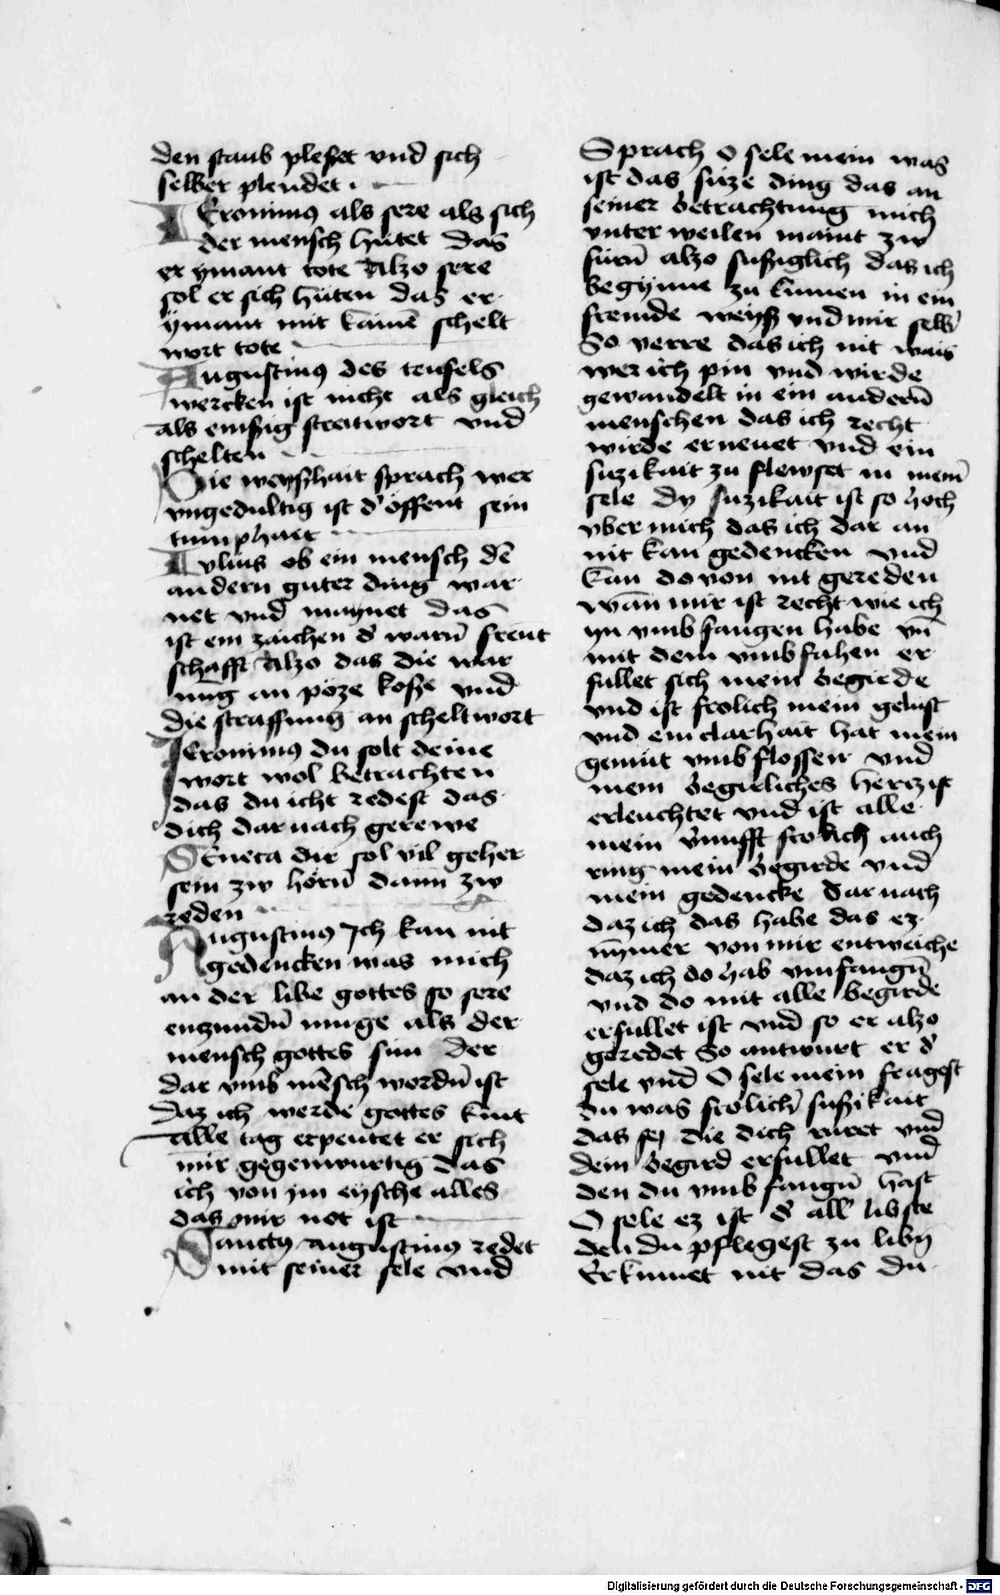 den staub pleset vnd sich
selber plendet ·
IEronimus als sere als sich
der mensch hütet das
er ymant tote Alzo sere
sol er sich hüten das er
ÿmant mit kainē schelt
wort tote
Augustinus des teufels
wercken ist nicht als gleich
als emßig streitwort vnd
schelten
Die weyßhait sprach wer
vngedultig ist d' öffent sein
tumphait
Iulius ob ein mensch dē
andern guter ding war
net vnd maynet das
ist ein zaichen d' warn̄ freut
schafft Alzo das die war
nung an pöze koße vnd
die straffung an scheltwort
Ieronimus du solt deine
wort wol betrachten
das du icht redest das
dich dar nach gerewe
SEneca dir sol vil geher
sein zw hörn̄ dann zw
reden
Augustinus Ich kan nit
gedencken was mich
an der libe gottes so sere
enzundn̄ muge als der
mensch gottes sun der
dar vmb mēsch wordn̄ ist
daz ich werde gottes kint
alle tag erpeutet er sich
mir gegenwurtig das
ich von ym eysche alles
das mir not ist
Sanctus augustinus redet
mit seiner sele vnd
Sprach o sele mein was
ist das süze ding das an
seiner betrachtung mich
vnter weilen maint zw
fürn̄ alzo sußiglich das ich
begÿnne zu kumen in ein
fremde weyß vnd mir selb'
So verre das ich nit wais
wer ich pin vnd wirde
gewandelt in ein andern̄
menschen das ich recht
wirde erneuet vnd ein
suzikait zu flewset in mein̄
sele Dy suzikait ist so hoch
vber mich das ich dar an
nit kan gedencken vnd
kan do von nit gereden
wan̄ mir ist recht wie ich
yn vmb fangen habe vn̄
mit dem vmb fahen er
fullet sich mein begirde
vnd ist frolich mein gelust
vnd ein clarhait hat mein
gemüt vmb flossen vnd
mein begirliches hertz ist
erleuchtet vnd ist alle
mein v'nufft frolich auch
ring mein begirde vnd
mein gedencke dar nach
daz ich das habe das ez
nymer von mir entweiche
daz ich do hab vmfangn̄
vnd do mit alle begirde
erfullet ist vnd so er alzo
geredet So antwurt er d'
sele vnd O sele mein fragest
du was frölich' sußikait
das sej die dich ruret vnd
dein begird erfullet vnd
den du vmb fangn̄ hast
O sele ez ist d' all' libste
den du pflegest zu libn̄
Erkennet nit das du